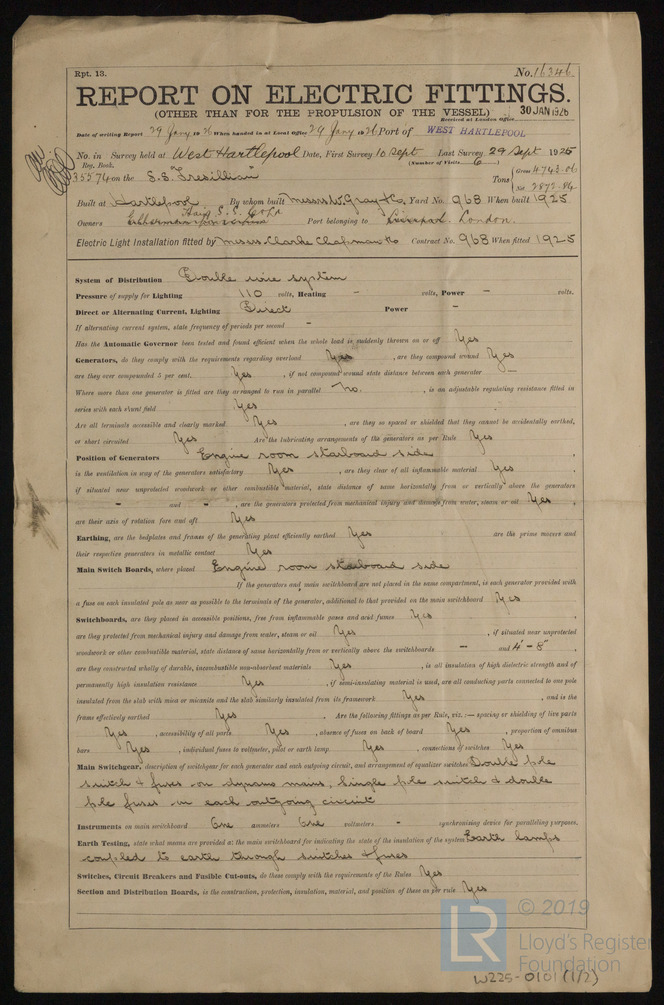 Rpt. 13. No. 16346
REPORT ON ELECTRIC FITTINGS.
(OTHER THAN FOR THE PROPULSION OF THE VESSEL) 30 JAN 1926
Received at London Office
Date of writing Report 29 Jany 1926 When handed in at Local Office 29 Jany 1926 Port of WEST HARTLEPOOL
No. in Survey held at West Hartlepool Date, First Survey 10 Sept Last Survey 29 Sept 1925
Reg. Book. (Number of Visits 6)
35574 on the S.S. Tresillian Tons { Gross 4743.06
Net 2872.84
Built at Hartlepool By whom built Messrs W. Gray & Co Yard No. 968 When built 1925
Owners Hain S.S. Co Ld Port belonging to London.
Electric Light Installation fitted by Messrs. Clarke Chapman & Co Contract No. 968 When fitted 1925
System of Distribution Double wire system
Pressure of supply for Lighting 110 volts, Heating – volts, Power – volts.
Direct or Alternating Current, Lighting Direct Power –
If alternating current system, state frequency of periods per second –
Has the Automatic Governor been tested and found efficient when the whole load is suddenly thrown on or off Yes
Generators, do they comply with the requirements regarding overload Yes, are they compound wound Yes
are they over compounded 5 per cent. Yes, if not compound wound state distance between each generator –
Where more than one generator is fitted are they arranged to run in parallel No., is an adjustable regulating resistance fitted in
series with each shunt field Yes
Are all terminals accessible and clearly marked Yes, are they so spaced or shielded that they cannot be accidentally earthed,
or short circuited Yes Are the lubricating arrangements of the generators as per Rule Yes
Position of Generators Engine room starboard side
is the ventilation in way of the generators satisfactory Yes, are they clear of all inflammable material Yes
if situated near unprotected woodwork or other combustible material, state distance of same horizontally from or vertically above the generators
– and –, are the generators protected from mechanical injury and damage from water, steam or oil Yes,
are their axis of rotation fore and aft Yes
Earthing, are the bedplates and frames of the generating plant efficiently earthed Yes are the prime movers and
their respective generators in metallic contact Yes
Main Switch Boards, where placed Engine room starboard side
If the generators and main switchboard are not placed in the same compartment, is each generator provided with
a fuse on each insulated pole as near as possible to the terminals of the generator, additional to that provided on the main switchboard Yes
Switchboards, are they placed in accessible positions, free from inflammable gases and acid fumes Yes,
are they protected from mechanical injury and damage from water, steam or oil Yes, if situated near unprotected
woodwork or other combustible material, state distance of same horizontally from or vertically above the switchboards – and 4' – 8",
are they constructed wholly of durable, incombustible non-absorbent materials Yes, is all insulation of high dielectric strength and of
permanently high insulation resistance Yes, if semi-insulating material is used, are all conducting parts connected to one pole
insulated from the slab with mica or micanite and the slab similarly insulated from its framework Yes, and is the
frame effectively earthed Yes. Are the following fittings as per Rule, viz.:— spacing or shielding of live parts
Yes, accessibility of all parts Yes, absence of fuses on back of board Yes, proportion of omnibus
bars Yes, individual fuses to voltmeter, pilot or earth lamp Yes, connections of switches Yes
Main Switchgear, description of switchgear for each generator and each outgoing circuit, and arrangement of equaliser switches Double pole
switch & fuses on dynamo mains, single pole switch & double
pole fuses on each outgoing circuit
Instruments on main switchboard One ammeters One voltmeters – synchronising device for paralleling purposes.
Earth Testing, state what means are provided at the main switchboard for indicating the state of the insulation of the system Earth lamps
coupled to earth through switches & fuses
Switches, Circuit Breakers and Fusible Cut-outs, do these comply with the requirements of the Rules Yes
Section and Distribution Boards, is the construction, protection, insulation, material, and position of these as per rule Yes
© 2019
LR
Lloyd's Register
Foundation
W225-0101 (1/2)